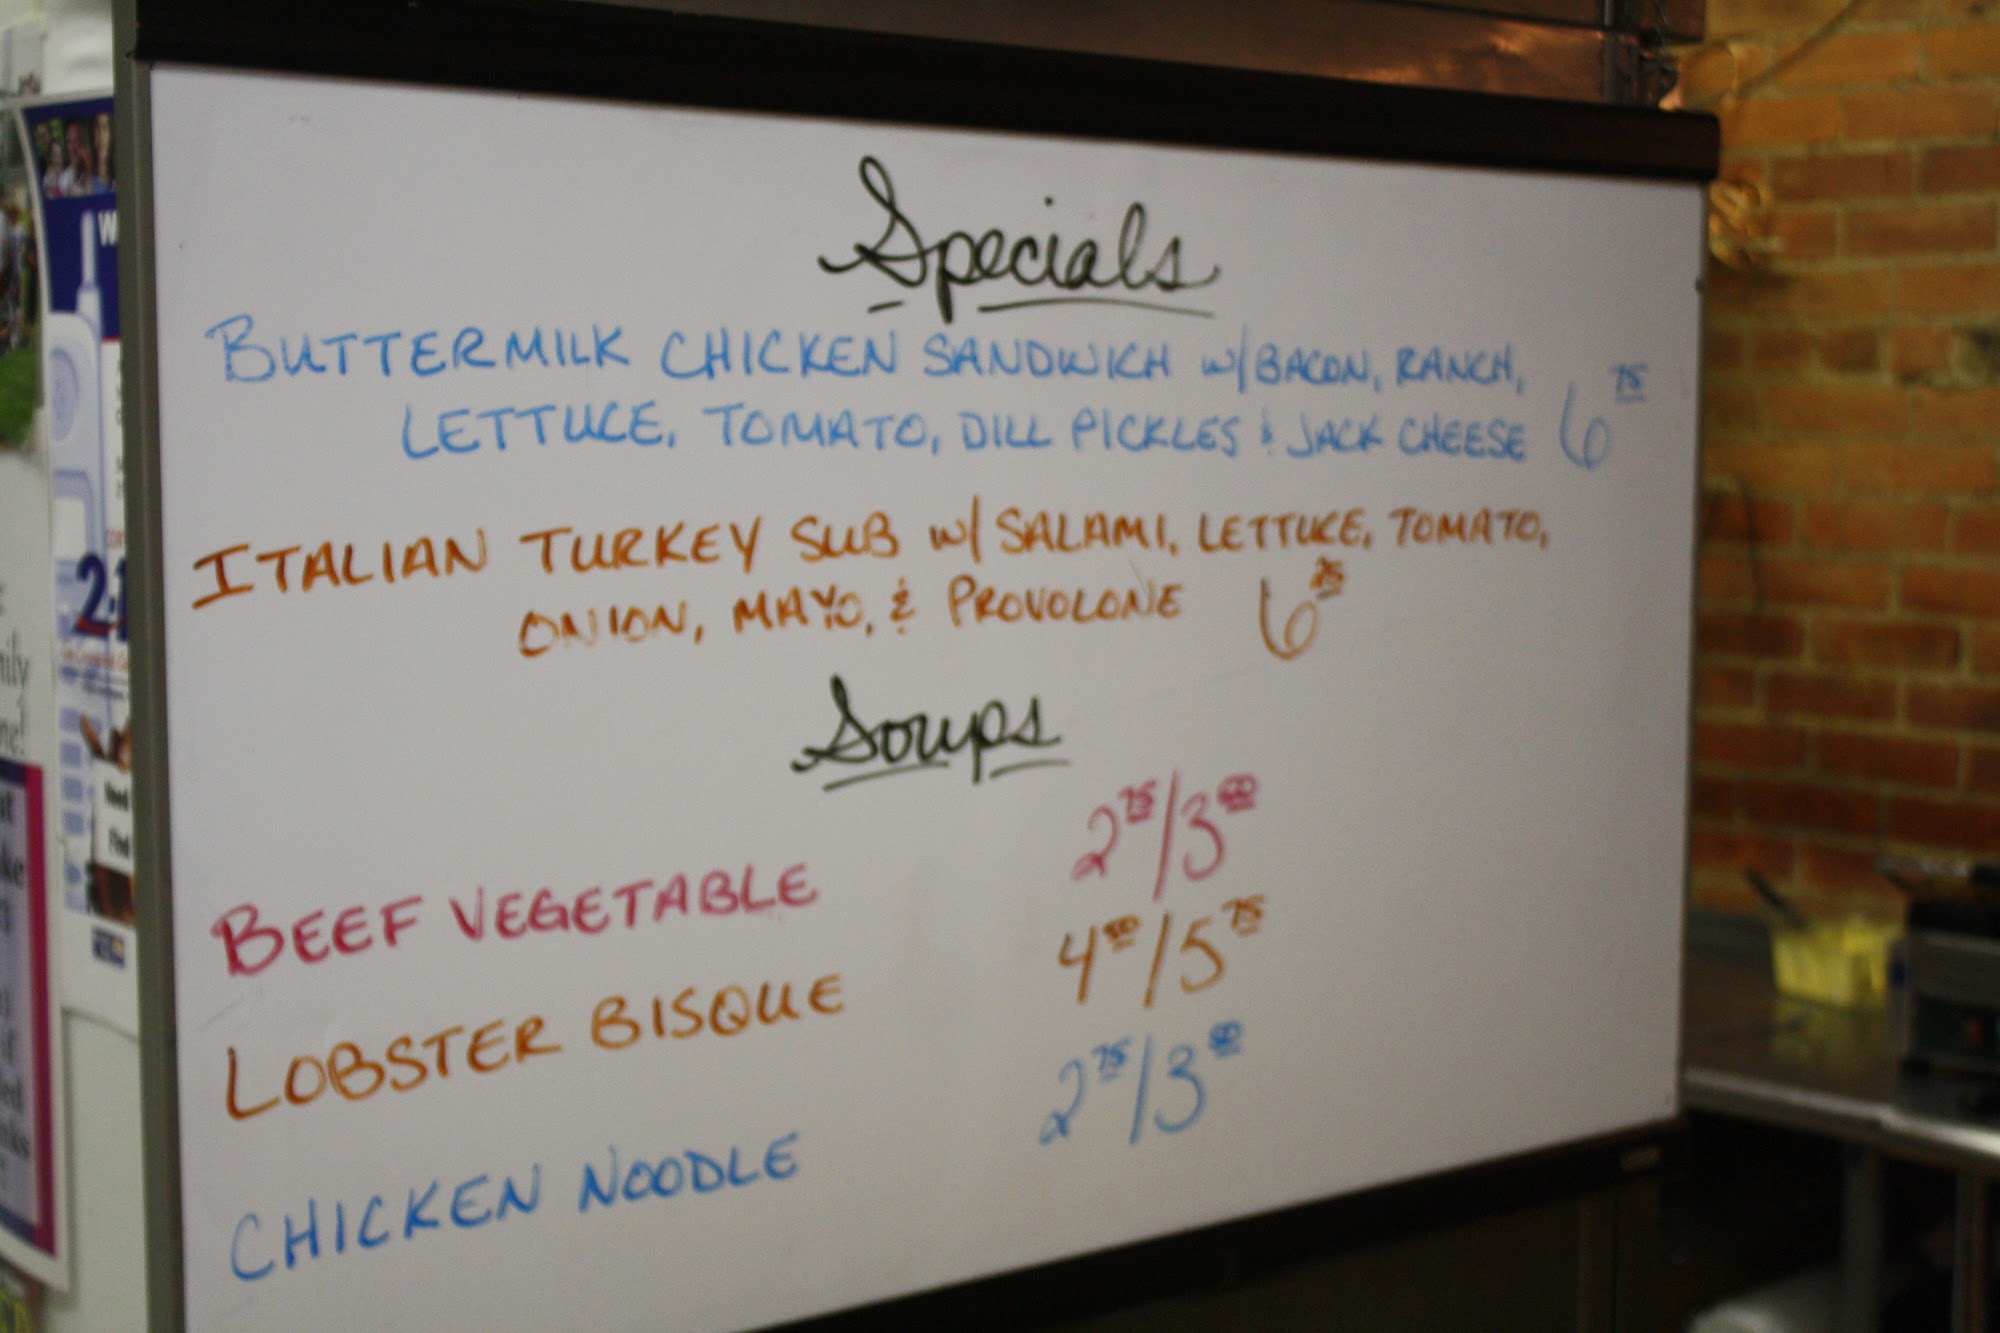 Specials
BUTTERMILK CHICKEN SANDWICH W/BACON, RANCH,
LETTUCE, TOMATO, DILL PICKLES & JACK CHEESE 6 75
ITALIAN TURKEY SUB W/ SALAMI, LETTUCE, TOMATO,
ONION, MAYO, & PROVOLONE 6 25
Soups
BEEF VEGETABLE 2 75/3 00
LOBSTER BISQUE 4 50/5 75
CHICKEN NOODLE 2 75/3 00